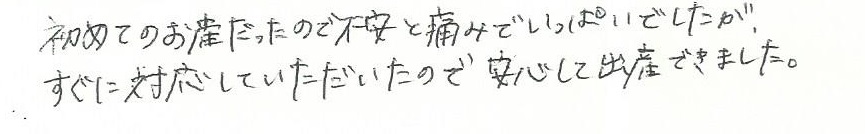 初めてのお産だったので不安と痛みでいっぱいでしたが、
すぐに対応していただいたので安心して出産できました。